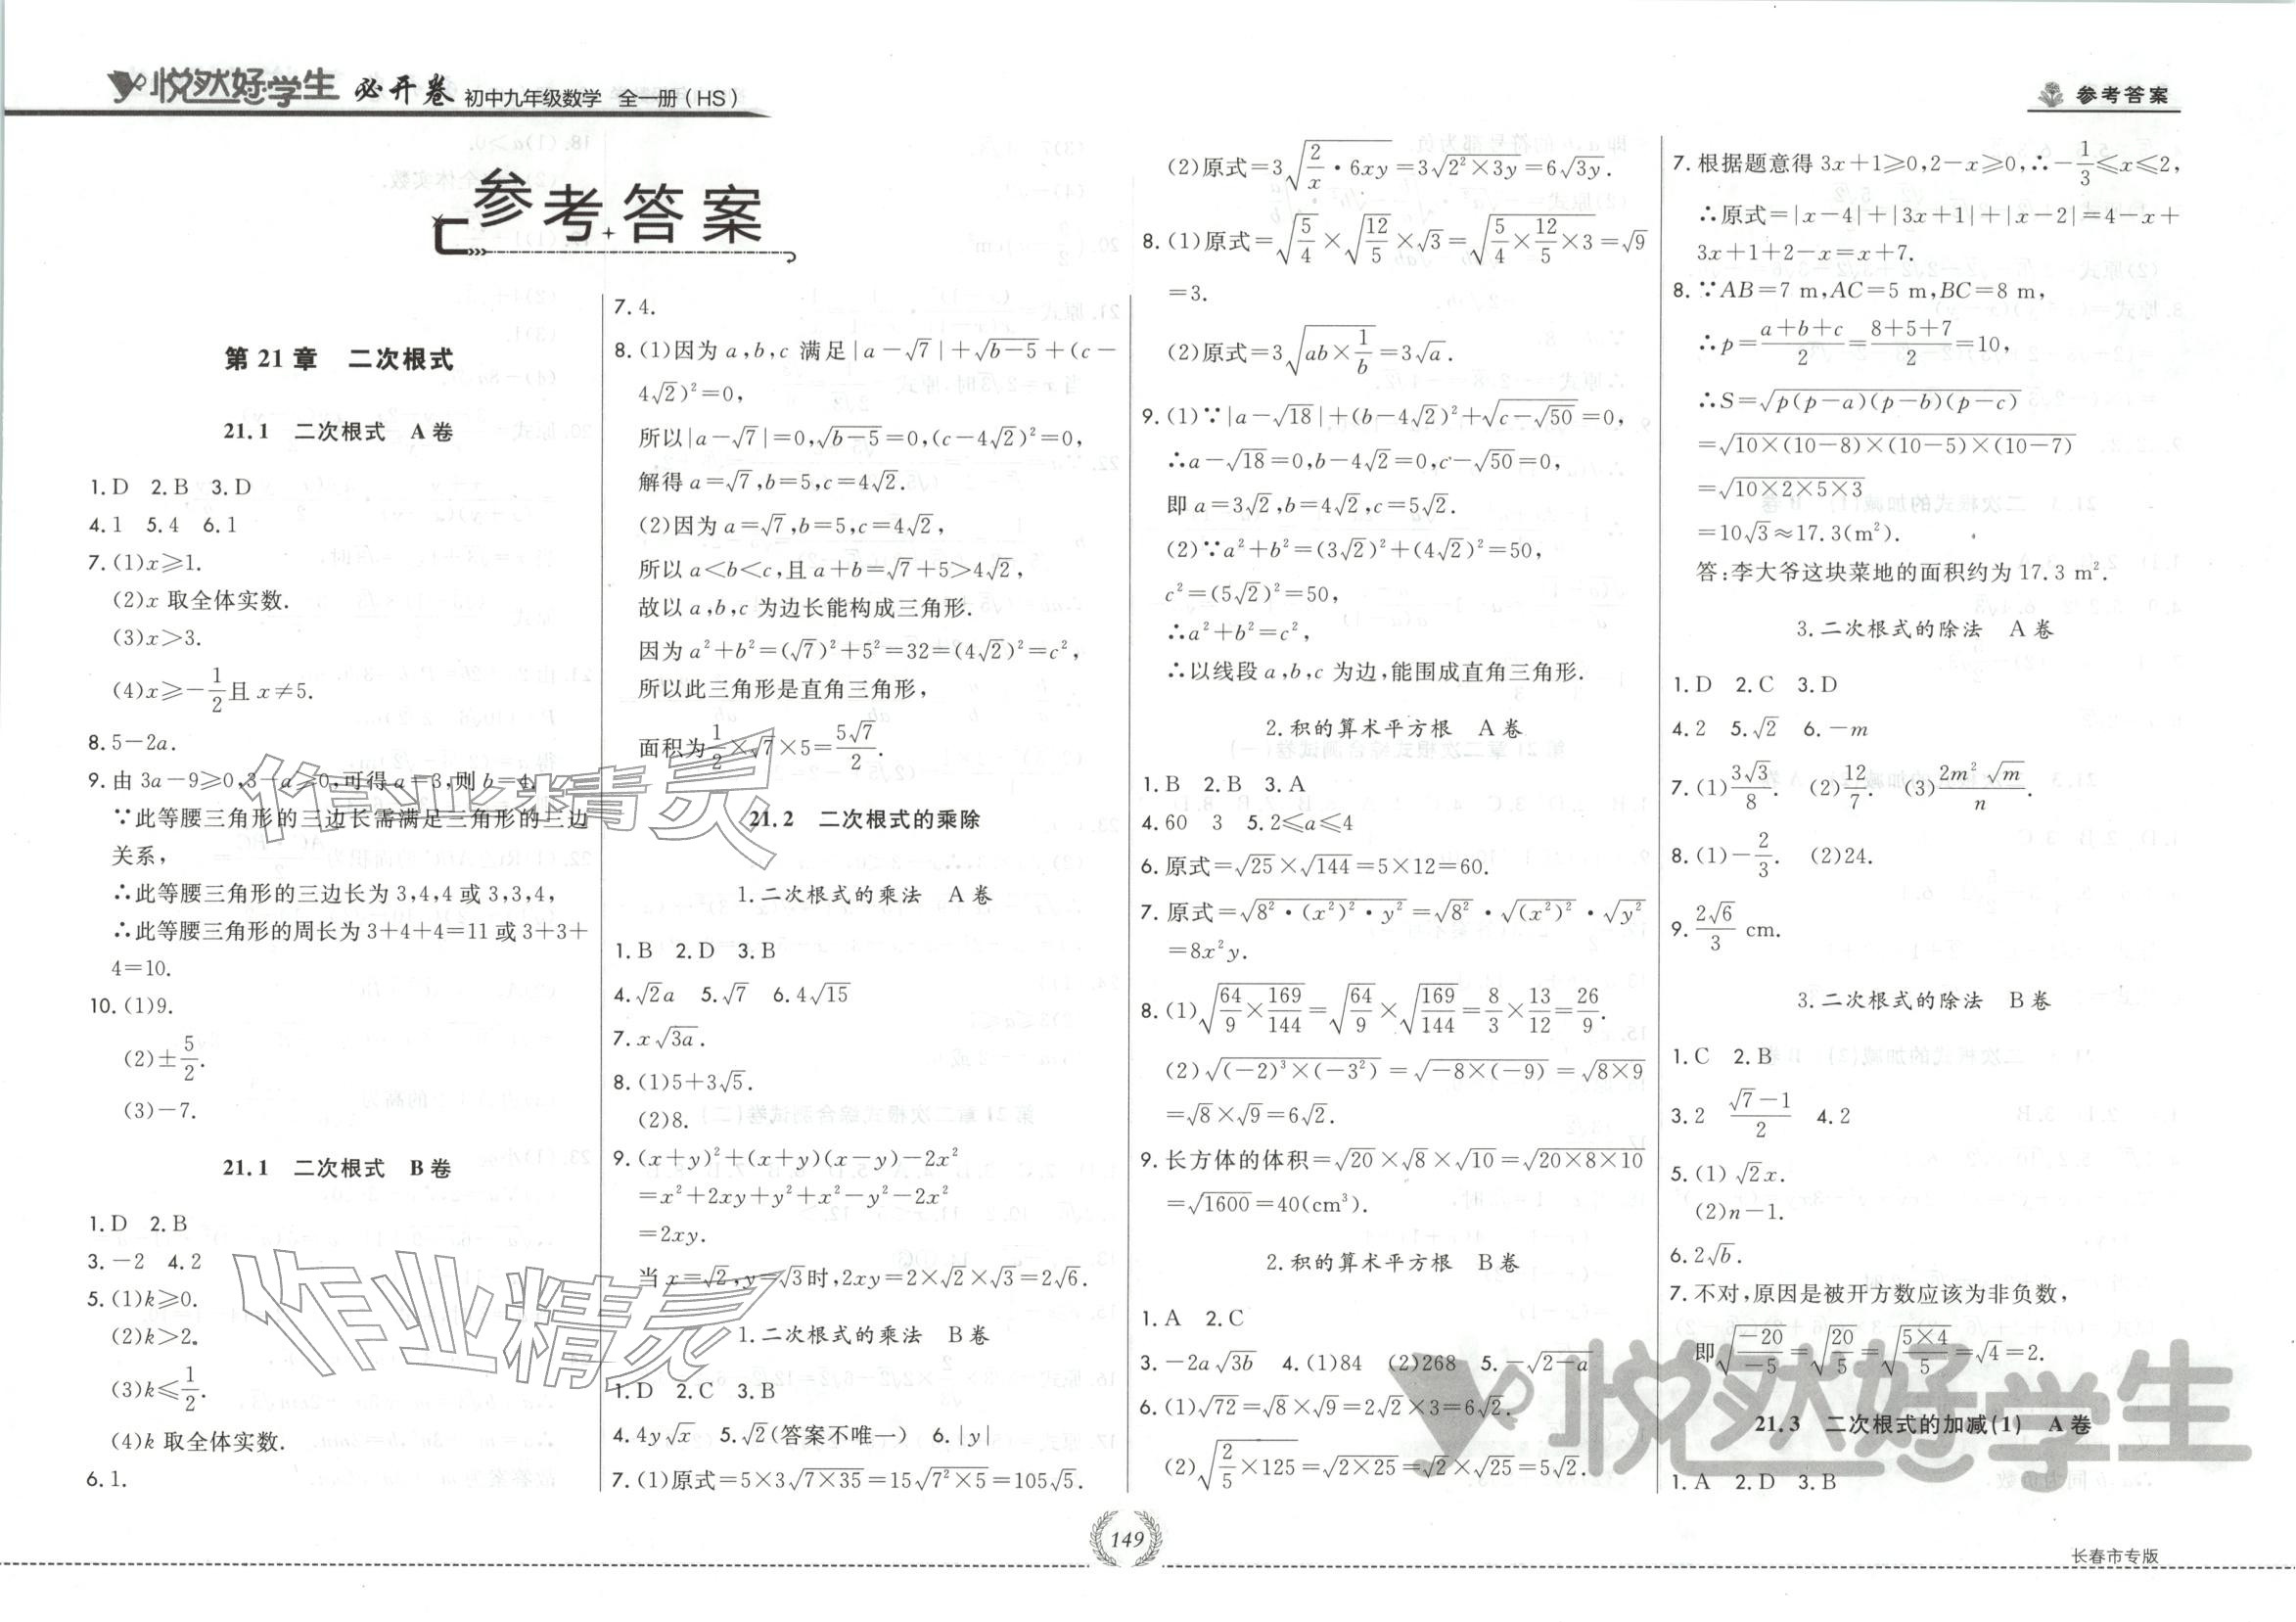 悦然好学生 必开卷 初中九年级数学 全一册(HS)
参考答案
参考答案
第21章 二次根式
21.1 二次根式 A卷
1.D 2.B 3.D
4.1 5.4 6.1
7.(1)x≥1.
(2)x取全体实数.
(3)x>3.
(4)x≥-1/2且x≠5.
8.5-2a.
9.由3a-9≥0,3-a≥0,可得a=3,则b=4.
∵此等腰三角形的三边长需满足三角形的三边
关系,
∴此等腰三角形的三边长为3,4,4或3,3,4,
∴此等腰三角形的周长为3+4+4=11或3+3+
4=10.
10.(1)9.
(2)±5/2.
(3)-7.
21.1 二次根式 B卷
1.D 2.B
3.-2 4.2
5.(1)k≥0.
(2)k>2.
(3)k≤1/2.
(4)k取全体实数.
6.1.
7.4.
8.(1)因为a,b,c满足|a-√7|+√(b-5)+(c-
4√2)²=0,
所以|a-√7|=0,√(b-5)=0,(c-4√2)²=0,
解得a=√7,b=5,c=4√2.
(2)因为a=√7,b=5,c=4√2,
所以a<b<c,且a+b=√7+5>4√2,
故以a,b,c为边长能构成三角形.
因为a²+b²=(√7)²+5²=32=(4√2)²=c²,
所以此三角形是直角三角形,
面积为1/2×√7×5=5√7/2.
21.2 二次根式的乘除
1.二次根式的乘法 A卷
1.B 2.D 3.B
4.√2a 5.√7 6.4√15
7.x√(3a).
8.(1)5+3√5.
(2)8.
9.(x+y)²+(x+y)(x-y)-2x²
=x²+2xy+y²+x²-y²-2x²
=2xy.
当x=√2,y=√3时,2xy=2×√2×√3=2√6.
1.二次根式的乘法 B卷
1.D 2.C 3.B
4.4y√x 5.√2(答案不唯一) 6.|y|
7.(1)原式=5×3√(7×35)=15√(7²×5)=105√5.
(2)原式=3√(2/x·6xy)=3√(2²×3y)=6√(3y).
8.(1)原式=√(5/4)×√(12/5)×√3=√(5/4×12/5×3)=√9
=3.
(2)原式=3√(ab×1/b)=3√a.
9.(1)∵|a-√18|+(b-4√2)²+√(c-√50)=0,
∴a-√18=0,b-4√2=0,c-√50=0,
即a=3√2,b=4√2,c=5√2.
(2)∵a²+b²=(3√2)²+(4√2)²=50,
c²=(5√2)²=50,
∴a²+b²=c²,
∴以线段a,b,c为边,能围成直角三角形.
2.积的算术平方根 A卷
1.B 2.B 3.A
4.60 3 5.2≤a≤4
6.原式=√25×√144=5×12=60.
7.原式=√(8²·(x²)²·y²)=√8²·√(x²)²·√y²
=8x²y.
8.(1)√(64/9×169/144)=√(64/9)×√(169/144)=8/3×13/12=26/9.
(2)√((-2)³×(-3²))=√(-8×(-9))=√(8×9)
=√8×√9=6√2.
9.长方体的体积=√20×√8×√10=√(20×8×10)
=√1600=40(cm³).
2.积的算术平方根 B卷
1.A 2.C
3.-2a√(3b) 4.(1)84 (2)268 5.-√(2-a)
6.(1)√72=√8×√9=2√2×3=6√2.
(2)√(2/5×125)=√(2×25)=√2×√25=5√2.
7.根据题意得3x+1≥0,2-x≥0,∴-1/3≤x≤2,
∴原式=|x-4|+|3x+1|+|x-2|=4-x+
3x+1+2-x=x+7.
8.∵AB=7 m,AC=5 m,BC=8 m,
∴p=(a+b+c)/2=(8+5+7)/2=10,
∴S=√(p(p-a)(p-b)(p-c))
=√(10×(10-8)×(10-5)×(10-7))
=√(10×2×5×3)
=10√3≈17.3(m²).
答:李大爷这块菜地的面积约为17.3 m².
3.二次根式的除法 A卷
1.D 2.C 3.D
4.2 5.√2 6.-m
7.(1)3√3/8. (2)12/7. (3)2m²√m/n.
8.(1)-2/3. (2)24.
9.2√6/3 cm.
3.二次根式的除法 B卷
1.C 2.B
3.2 (√7-1)/2 4.2
5.(1)√2x.
(2)n-1.
6.2√b.
7.不对,原因是被开方数应该为非负数,
即√(-20/-5)=√(20/5)=√(5×4/5)=√4=2.
21.3 二次根式的加减(1) A卷
1.A 2.D 3.B
作业精灵
作业精灵
悦然好学生
149
长春市专版